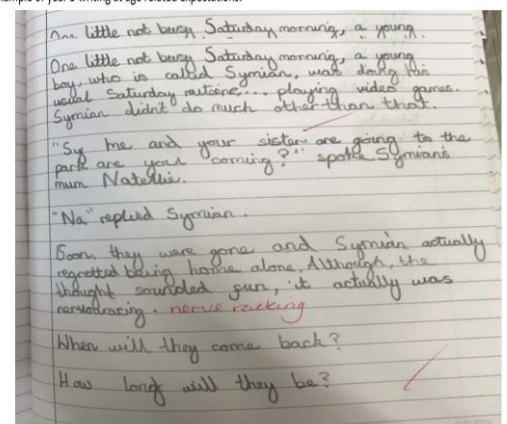 One little not busy Saturday morning, a young
One little not busy Saturday morning, a young
boy, who is called Symian, was doing his
usual Saturday routine... playing video games.
Symian didn't do much other than that.
"Sy me and your sister are going to the
park are you coming?" spoke Symian's
mum Natellie.
"Na" replied Symian.
Soon, they were gone and Symian actually
regretted being home alone. Although, the
thought sounded fun, it actually was
nerve racking
When will they come back?
How long will they be?